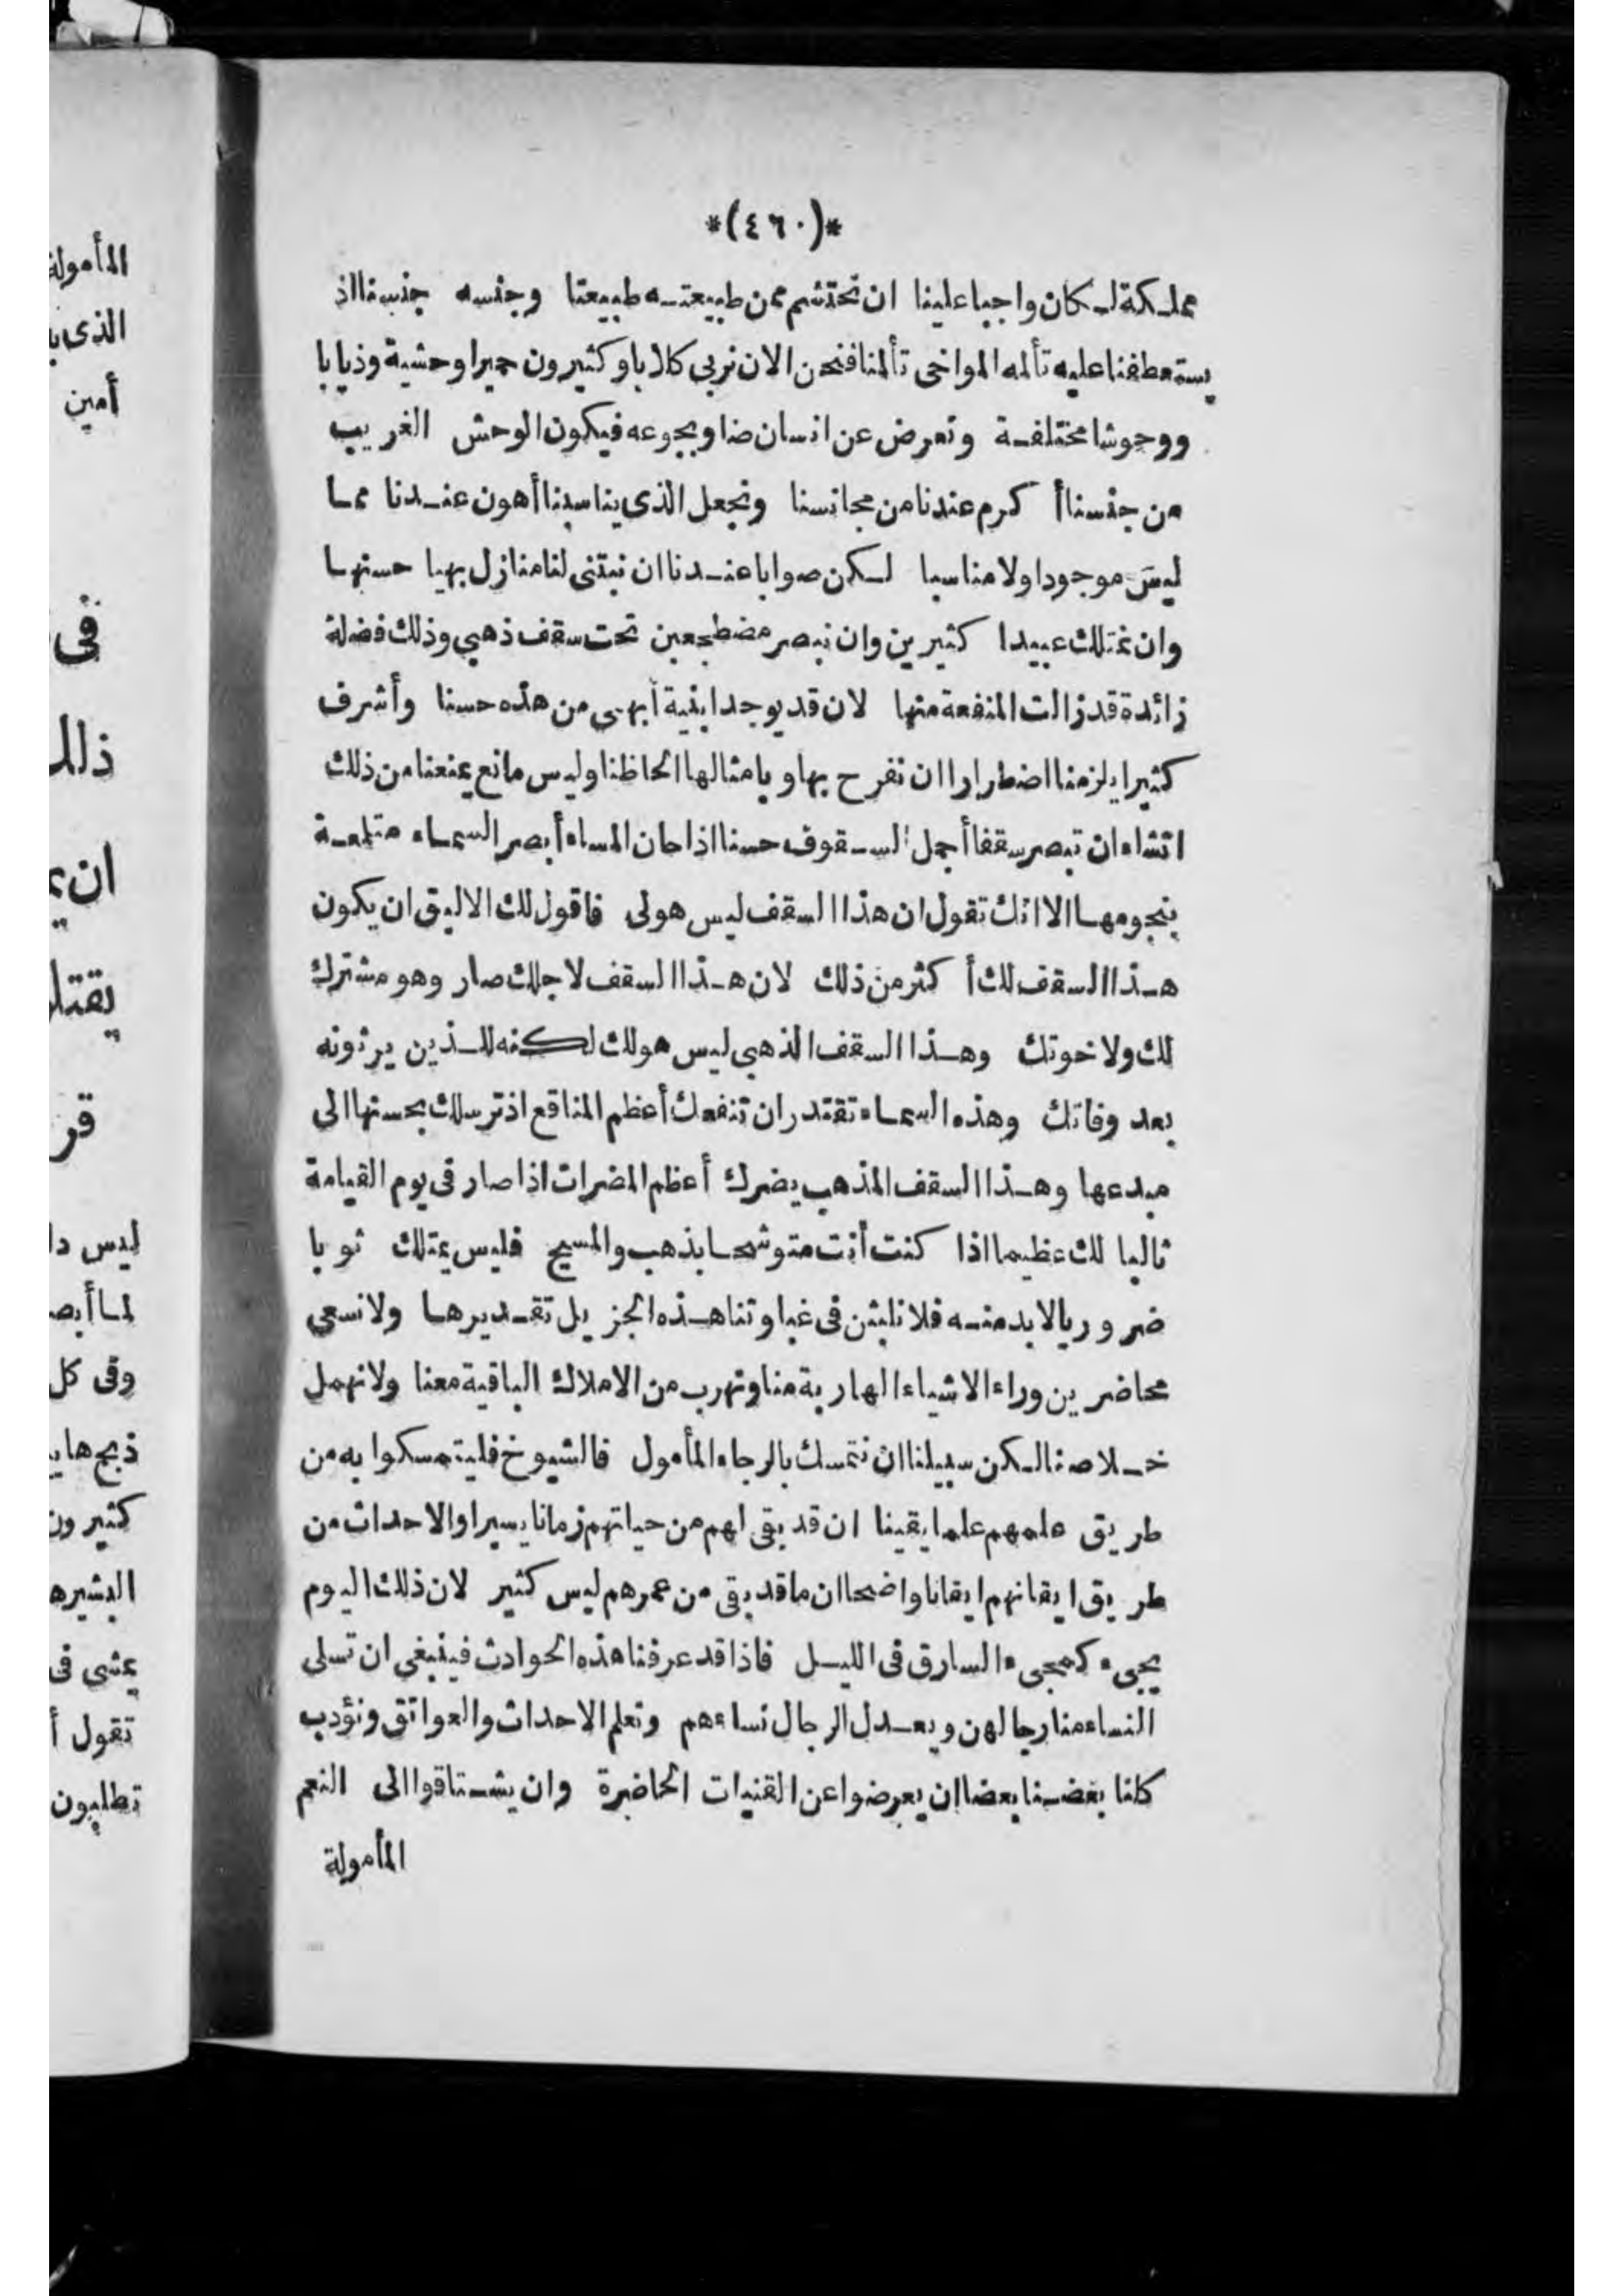 *(٤٦٠)*
مملكة لكان واجبا علينا ان نحتشم ممن طبيعته طبيعتنا وجنسه جنسنا اذ
يستعطفنا عليه تألمه المواخى تألمنا فنحن الان نربي كلابا وكثيرون حميرا وحشية وذيابا
ووحوشا مختلفة ونعرض عن انسان ضاو بجوعه فيكون الوحش الغريب
من جنسنا أكرم عندنا من مجانسنا ونجعل الذى يناسبنا أهون عندنا مما
ليس موجودا ولا مناسبا لكن صوابا عندنا ان نبتنى لنا منازل بهيا حسنها
وان نمتلك عبيدا كثيرين وان نبصر مضطجعين تحت سقف ذهبي وذلك فضلة
زائدة قد زالت المنفعة منها لان قد يوجد ابنية أبهى من هذه حسنا وأشرف
كثيرا يلزمنا اضطرارا ان نفرح بها وبامثالها الحاظنا وليس مانع يمنعنا من ذلك
اتشاء ان تبصر سقفا أجمل السقوف حسنا اذا حان المساء أبصر السماء متلمعة
بنجومها الا انك تقول ان هذا السقف ليس هو لى فاقول لك الاليق ان يكون
هذا السقف لك أكثر من ذلك لان هذا السقف لاجلك صار وهو مشترك
لك ولاخوتك وهذا السقف الذهبى ليس هو لك لكنه للذين يرثونه
بعد وفاتك وهذه السماء تقتدر ان تنفعك أعظم المنافع اذ ترسلك بحسنها الى
مبدعها وهذا السقف المذهب يضرك أعظم المضرات اذا صار فى يوم القيامة
ثالبا لك عظيما اذا كنت أنت متوشحا بذهب والمسيح فليس يمتلك ثوبا
ضروريا لابد منه فلا نلبثن فى غباوتنا هذه الجزيل تقديرها ولا نسعى
محاضرين وراء الاشياء الهاربة منا ونهرب من الاملاك الباقية معنا ولا نهمل
خلاصنا لكن سبيلنا ان نتمسك بالرجاء المأمول فالشيوخ فليتمسكوا به من
طريق علمهم علما يقينا ان قد بقى لهم من حياتهم زمانا يسيرا والاحداث من
طريق ايقانهم ايقانا واضحا ان ما قد بقى من عمرهم ليس كثير لان ذلك اليوم
يجىء كمجىء السارق فى الليل فاذا قد عرفنا هذه الحوادث فينبغى ان تسلى
النساء منا رجالهن ويعدل الرجال نساءهم ونعلم الاحداث والعواتق ونؤدب
كلنا بعضنا بعضا ان يعرضوا عن القنيات الحاضرة وان يشتاقوا الى النعم
المأمولة
المأمولة
أمين
فى
ليس
وفى كل
كثيرون
تقول
تطلبون